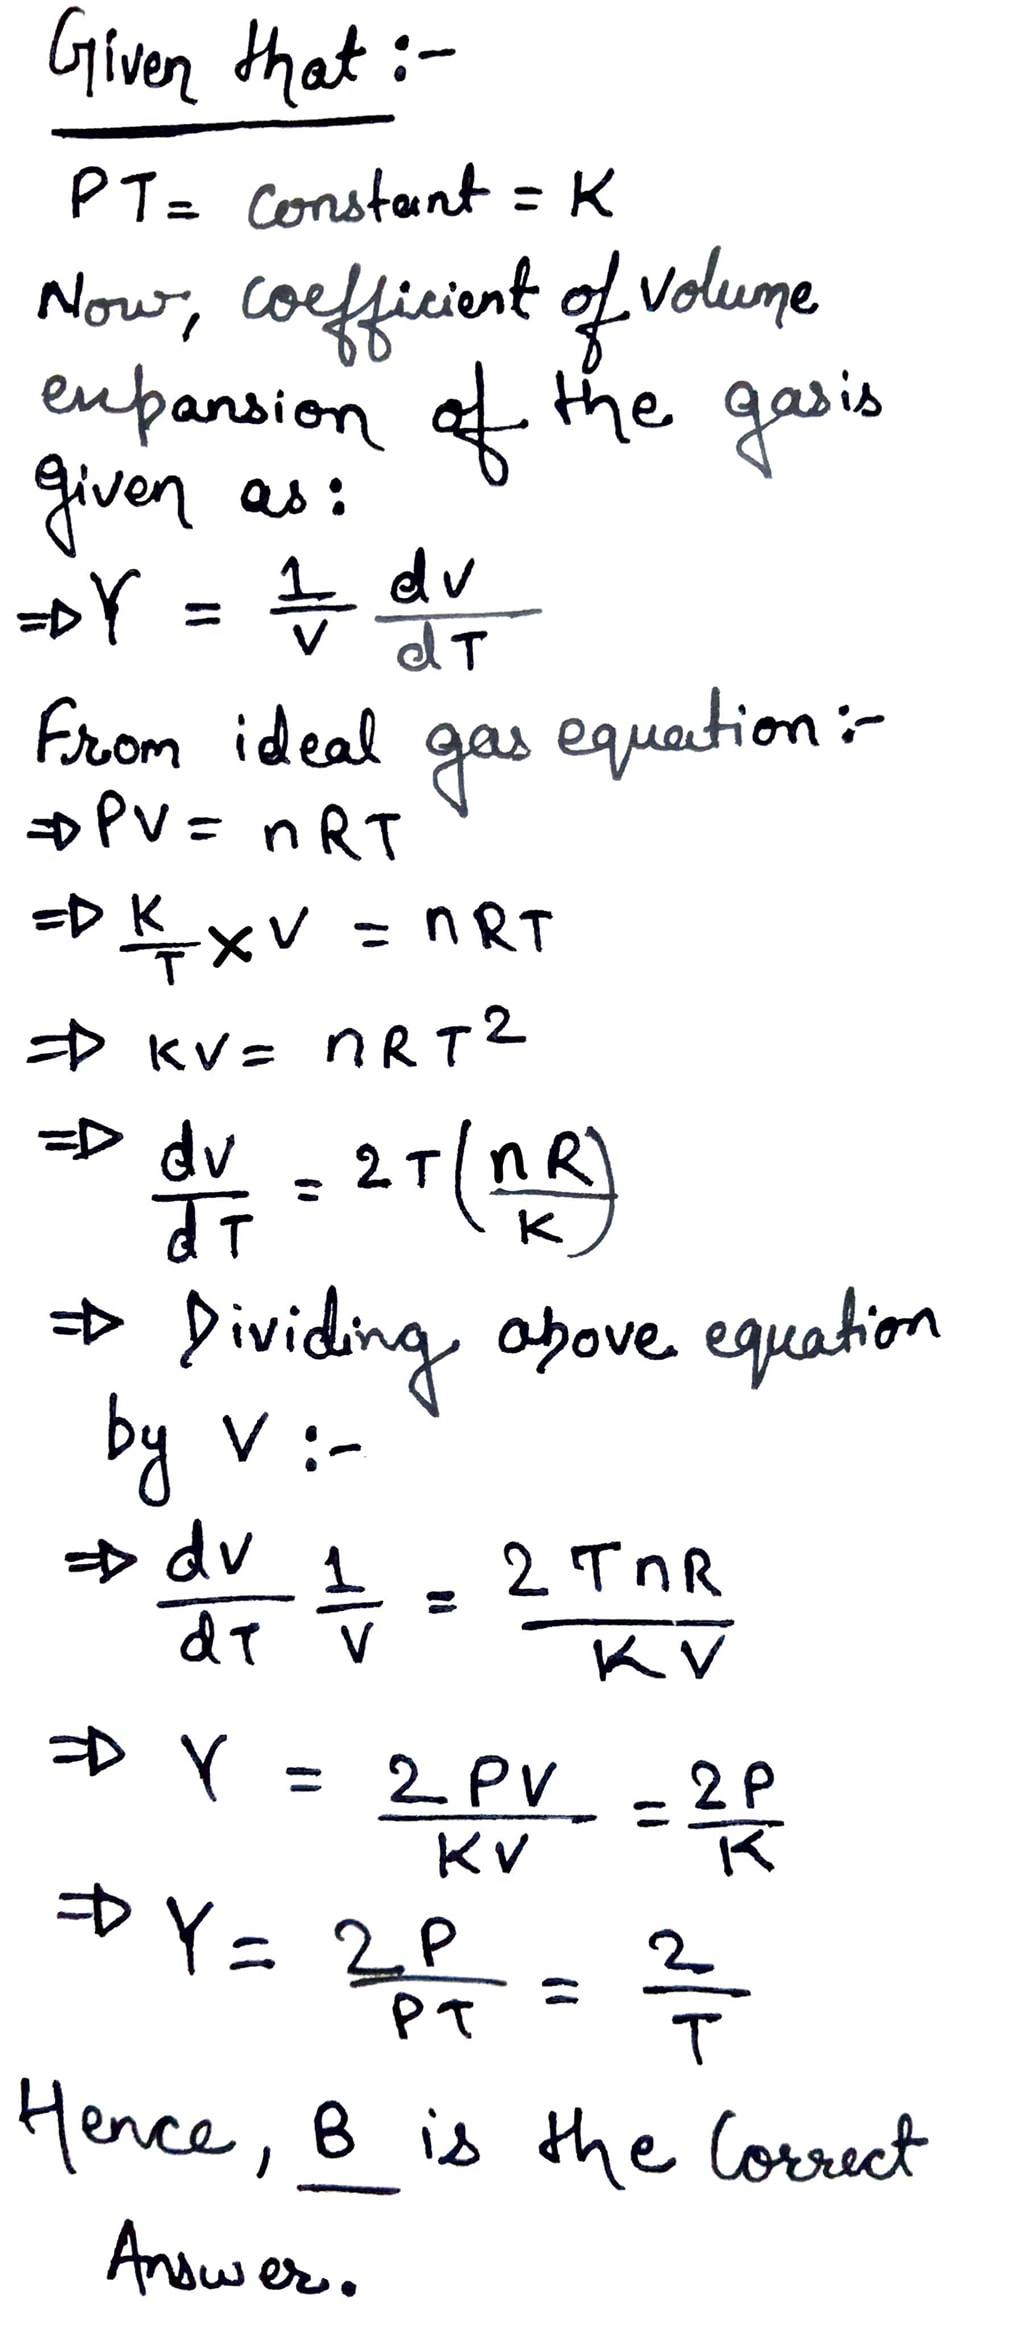 Given that :-
PT = constant = K
Now, coefficient of volume
expansion of the gas is
given as :
⇒ γ = 1/V dV/dT
From ideal gas equation :-
⇒ PV = nRT
⇒ K/T × V = nRT
⇒ KV = nRT²
⇒ dV/dT = 2T(nR/K)
⇒ Dividing above equation
by V :-
⇒ dV/dT 1/V = 2TnR/KV
⇒ γ = 2PV/KV = 2P/K
⇒ γ = 2P/PT = 2/T
Hence, B is the Correct
Answer.